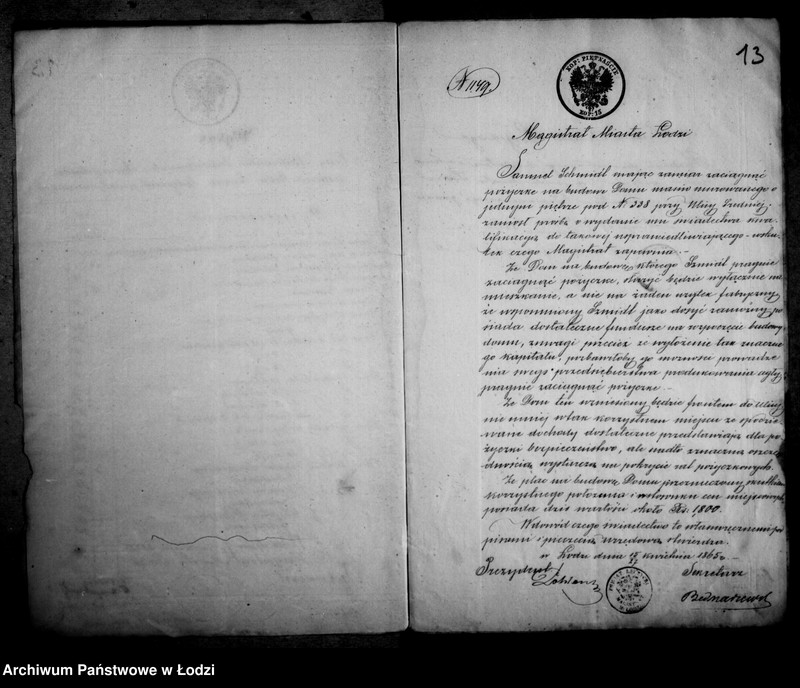 13
N 1149
KOP: PIĘTNAŚCIE
KOP: 15
Magistrat Miasta Łodzi
Samuel Schmidt mając zamiar zaciągnąć
pożyczkę na budowę Domu masiw murowanego o
jednym piętrze pod N 328 przy Ulicy Średniej,
zaniósł prośbę o wydanie mu świadectwa kwa-
lifikacyą do takowej usprawiedliwiającego - wsku-
tek czego Magistrat zapewnia. -
Że Dom na budowę którego Szmidt pragnie
zaciągnąć pożyczkę, służyć będzie wyłącznie na
mieszkanie, a nie na żaden użytek fabryczny
że wspomniony Szmidt jako dosyć zamożny po-
siada dostateczne fundusze na rozpoczęcie budowy
domu, z uwagi przecież że wyłożenie tak znaczne-
go kapitału, pozbawiłoby go możności prowadze-
nia swego przedsiębierstwa produkowania
pragnie zaciągnąć pożyczkę -
Że Dom ten wzniesiony będzie frontem do Ulicy
nie mniej w tak korzystnem miejscu że spodzie-
wane dochody dostateczne przedstawiają dla po-
życzki bezpieczeństwo, ale nadto znaczną oszczę-
dnością wystarczą na pokrycie rat pożyczkowych.
Że plac na budowę Domu przeznaczony skutkiem
korzystnego położenia i stosunku cen miejscowych
posiada dziś wartość około Rs. 1800.
W dowód czego świadectwo to własnoręcznemi pod-
pisami i pieczęcią urzędową stwierdza.
w Łodzi dnia Kwietnia 1865 r. -
Prezydent
Sekretarz
Bednarzewski
Archiwum Państwowe w Łodzi